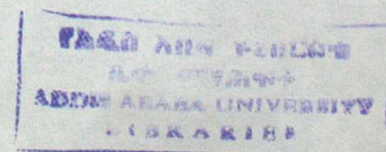 አዲስ አበባ ዩኒቨርሲቲ
ADDIS ABABA UNIVERSITY
LIBRARIES